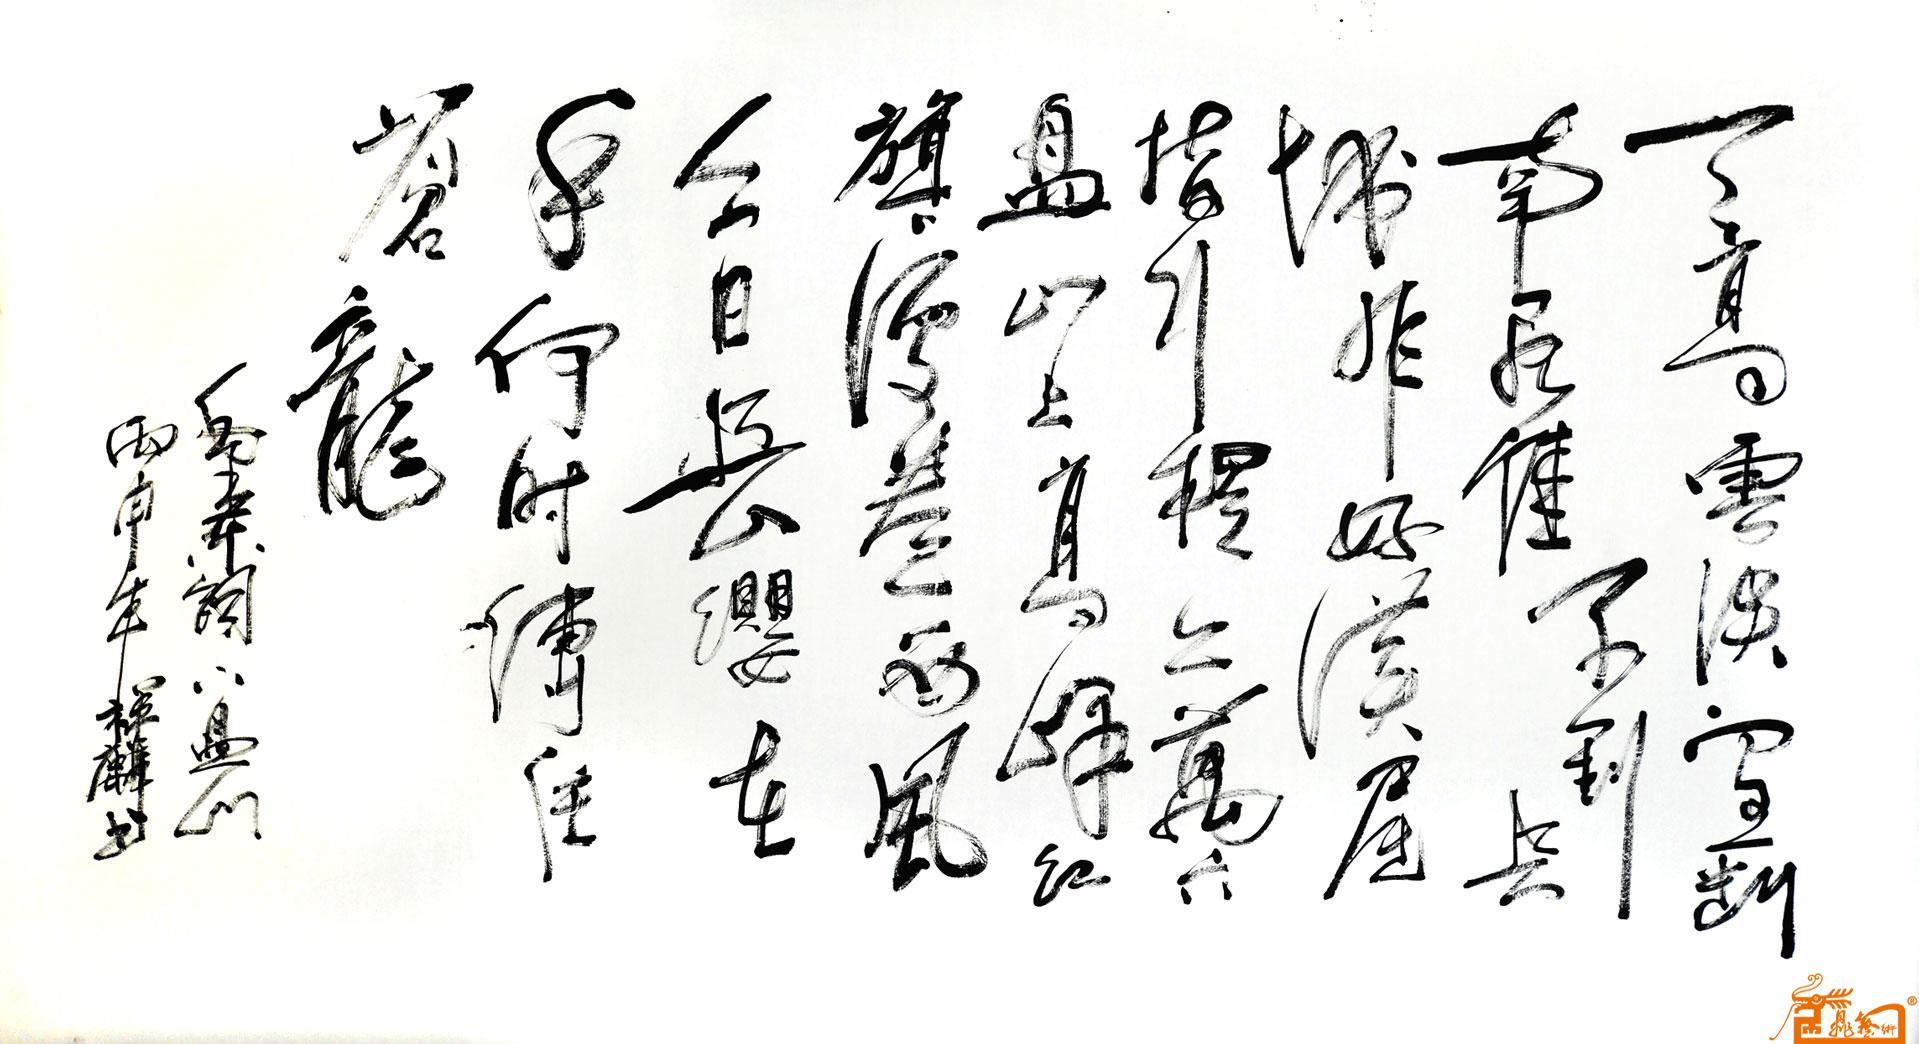 天高雲淡望断
南飛雁不到长
城非好漢屈
指行程二萬六
盘山上高峰红
旗漫卷西風
今日長纓在
手何时縛住
蒼龍
毛主席词六盘山
丙申年 麟书
藝術